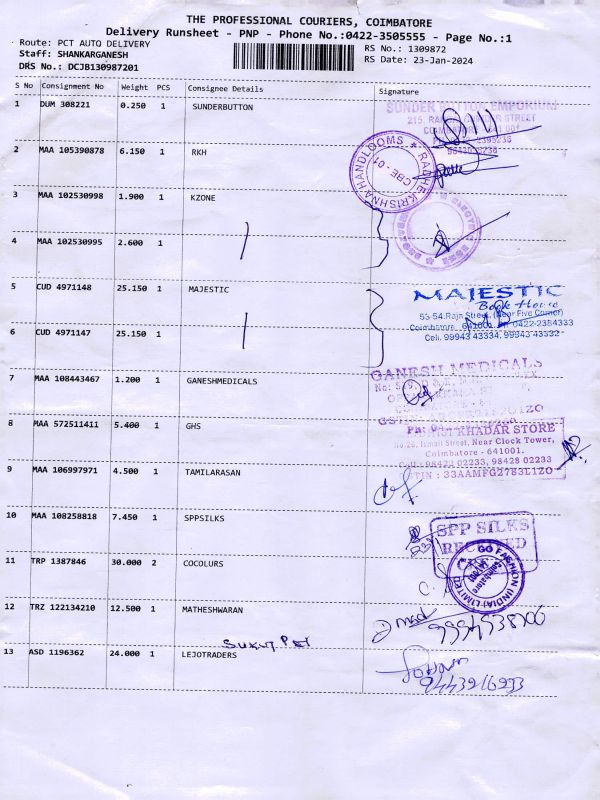 THE PROFESSIONAL COURIERS, COIMBATORE
Delivery Runsheet - PNP - Phone No.:0422-3505555 - Page No.:1
Route: PCT AUTO DELIVERY
RS No.: 1309872
Staff: SHANKARGANESH
RS Date: 23-Jan-2024
DRS No.: DCJB130987201
S No Consignment No Weight PCS Consignee Details Signature
1 DUM 308221 0.250 1 SUNDERBUTTON
SUNDER BUTTON EMPORIUM
2 MAA 105390878 6.150 1 RKH
RADHE KRISHNA HANDLOOMS
CBE - 01
3 MAA 102530998 1.900 1 KZONE
4 MAA 102530995 2.600 1
5 CUD 4971148 25.150 1 MAJESTIC
MAJESTIC
Book House
53-54, Raja Street, (Near Five Corner)
Coimbatore 641001. 0422-2384333
Cell: 99943 43334, 99943 43332
6 CUD 4971147 25.150 1
7 MAA 108443467 1.200 1 GANESHMEDICALS
GANESH MEDICALS
8 MAA 572511411 5.400 1 GHS
KHADAR STORE
Ismail Street, Near Clock Tower,
Coimbatore - 641001.
Cell : 98422 02233, 98428 02233
33AAMFG2783L1ZO
9 MAA 106997971 4.500 1 TAMILARASAN
10 MAA 108258818 7.450 1 SPPSILKS
SPP SILKS
RECEIVED
11 TRP 1387846 30.000 2 COCOLURS
GO FASHION (INDIA) LIMITED
Coimbatore
12 TRZ 122134210 12.500 1 MATHESHWARAN
13 ASD 1196362 24.000 1 LEJOTRADERS
9443216993